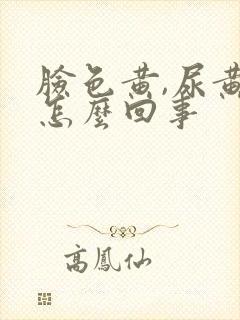 臉色黃,尿黃
怎麼回事
高鳳仙